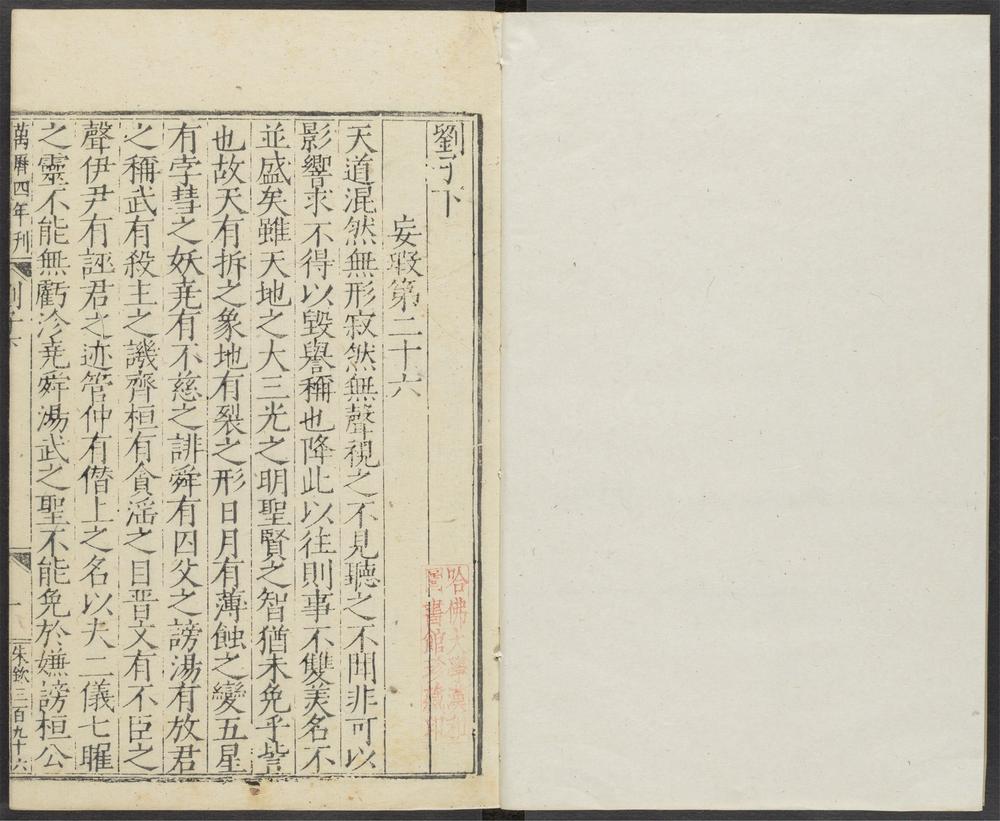 劉子下
妄瑕第二十六
天道混然無形寂然無聲視之不見聽之不聞非可以
影響求不得以毀譽稱也降此以往則事不雙美名不
並盛矣雖天地之大三光之明聖賢之智猶未免乎訾
也故天有拆之象地有裂之形日月有薄蝕之變五星
有孛彗之妖堯有不慈之誹舜有囚父之謗湯有放君
之稱武有殺主之譏齊桓有貪淫之目晋文有不臣之
聲伊尹有誣君之迹管仲有僭上之名以夫二儀七曜
之靈不能無虧沴堯舜湯武之聖不能免於嫌謗桓公
萬曆四年刊
朱欽三百九十六
哈佛大學漢和
圖書館珍藏印